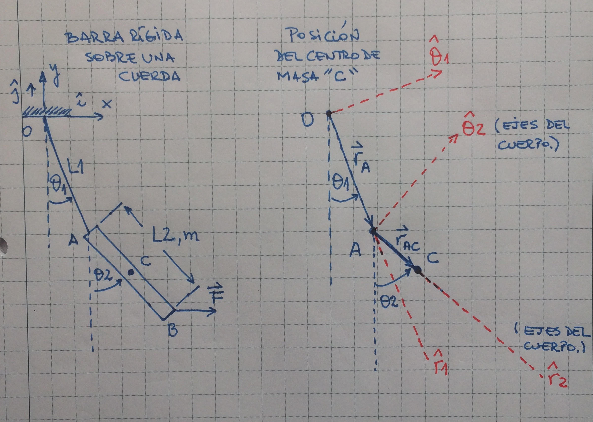 BARRA RÍGIDA
SOBRE UNA
CUERDA
ĵ
y
î
x
O
L1
θ1
A
L2, m
C
θ2
F⃗
B
POSICIÓN
DEL CENTRO DE
MASA "C"
θ̂1
O
θ̂2 (EJES DEL
CUERPO.)
r⃗A
θ1
A
r⃗AC
C
θ2
r̂1
(EJES DEL
CUERPO.)
r̂2